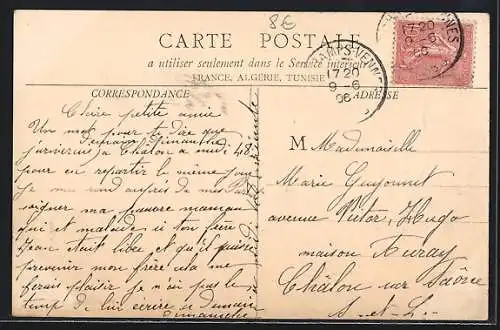 8€
CARTE POSTALE
a utiliser seulement dans le Service intérieur
FRANCE, ALGÉRIE, TUNISIE
CORRESPONDANCE
ADRESSE
CHAMPS-VENNES
1720
9-6
06
1720
9-6
06
Chère petite amie
Un mot pour te dire que
demain Dimanche
j'arriverai à Chalon a midi 48
pour en repartir le même jour
je me rend auprès de ma
soigner ma pauvre maman
qui et malade si ton frère
Jean était libe et qu'il puisse
prevenir mon frère cela me
ferais plaisir je n'ai pas le
temp de lui écrire
dimanche
M Mademoiselle
Marie Guyonnet
avenue Victor Hugo
maison
Châlon sur Saône
S-et-L